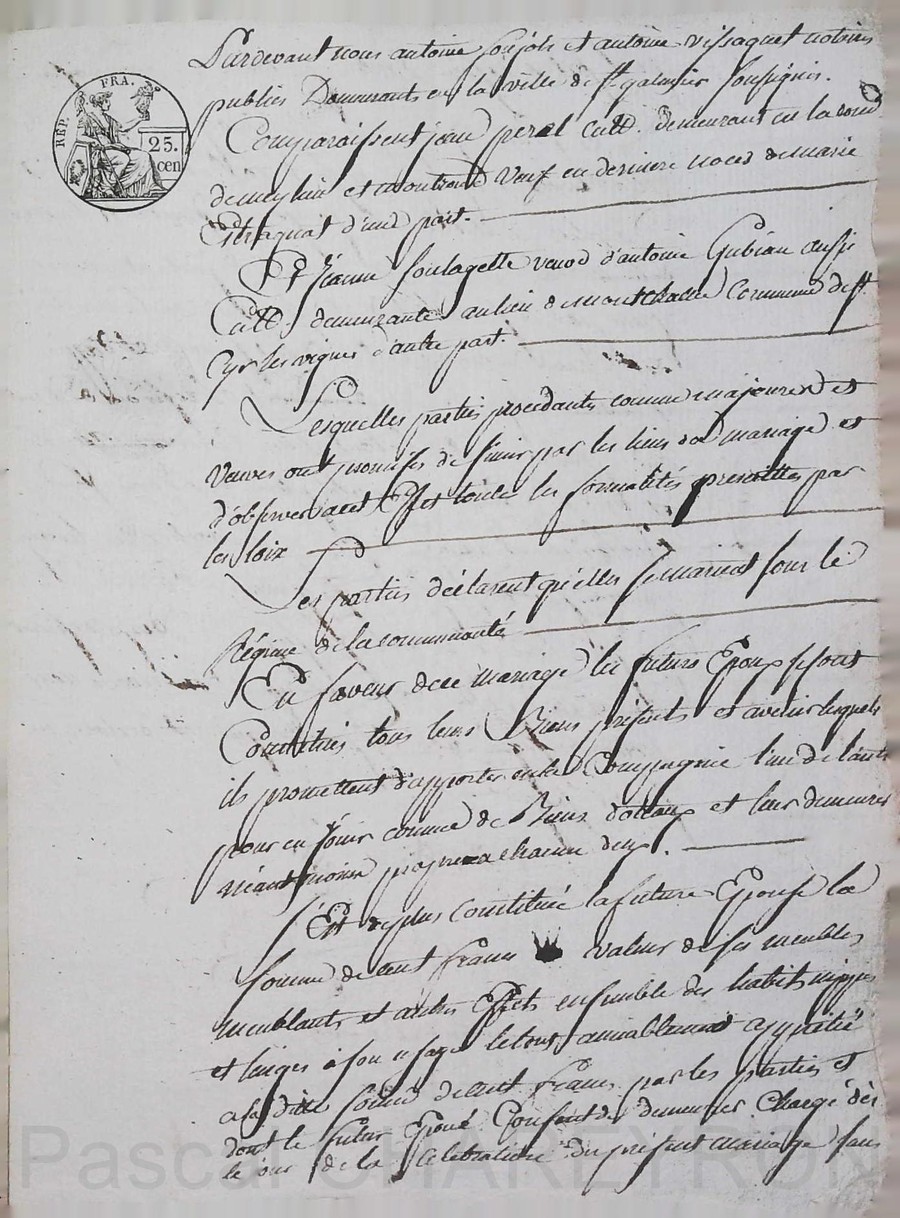 RÉP. FRA.
25.
cen
Pardevant nous antoine et antoine vissaguet notaires
publics Demeurants en la ville de st. galmier soussignés.
Comparaissent jean peral cult. demeurant en la comm
de meylieu et montrond Veuf en derniere noces de marie
d'une part.
Et Jeanne soulagette veuve d'antoine Gubian aussi
Cult. demeurante au lieu de Commune de st.
Cyr les vignes d'autre part.
Lesquelles parties procedants comme majeures et
veuves ont promises de s'unir par les liens du mariage et
d'observer a cet Effet toutes les formalités prescrittes par
les loix
Les parties déclarent qu'elles se marient sous le
Régime de la communauté
En faveur de ce mariage les futurs Epoux se sont
Constitués tous leurs Biens présents et avenir lesquels
ils promettent d'apporter en la Compagnie l'un de l'autre
pour en Jouir comme de Biens dotaux et leur demeurer
néantmoins propres a chacun deux.
S'Est de plus Constituée la future Epouse la
somme de cent francs valeur de ses meubles
meublants et autres Effets ensemble des habits nippes
et linges à son usage le tout amiablement apprétié
a la ditte somme de cent francs par les parties et
dont le futur Epoux Consent de demeurer Chargé dès
le jour de la Celebration du présent mariage sans
Pascal CHAREYRON